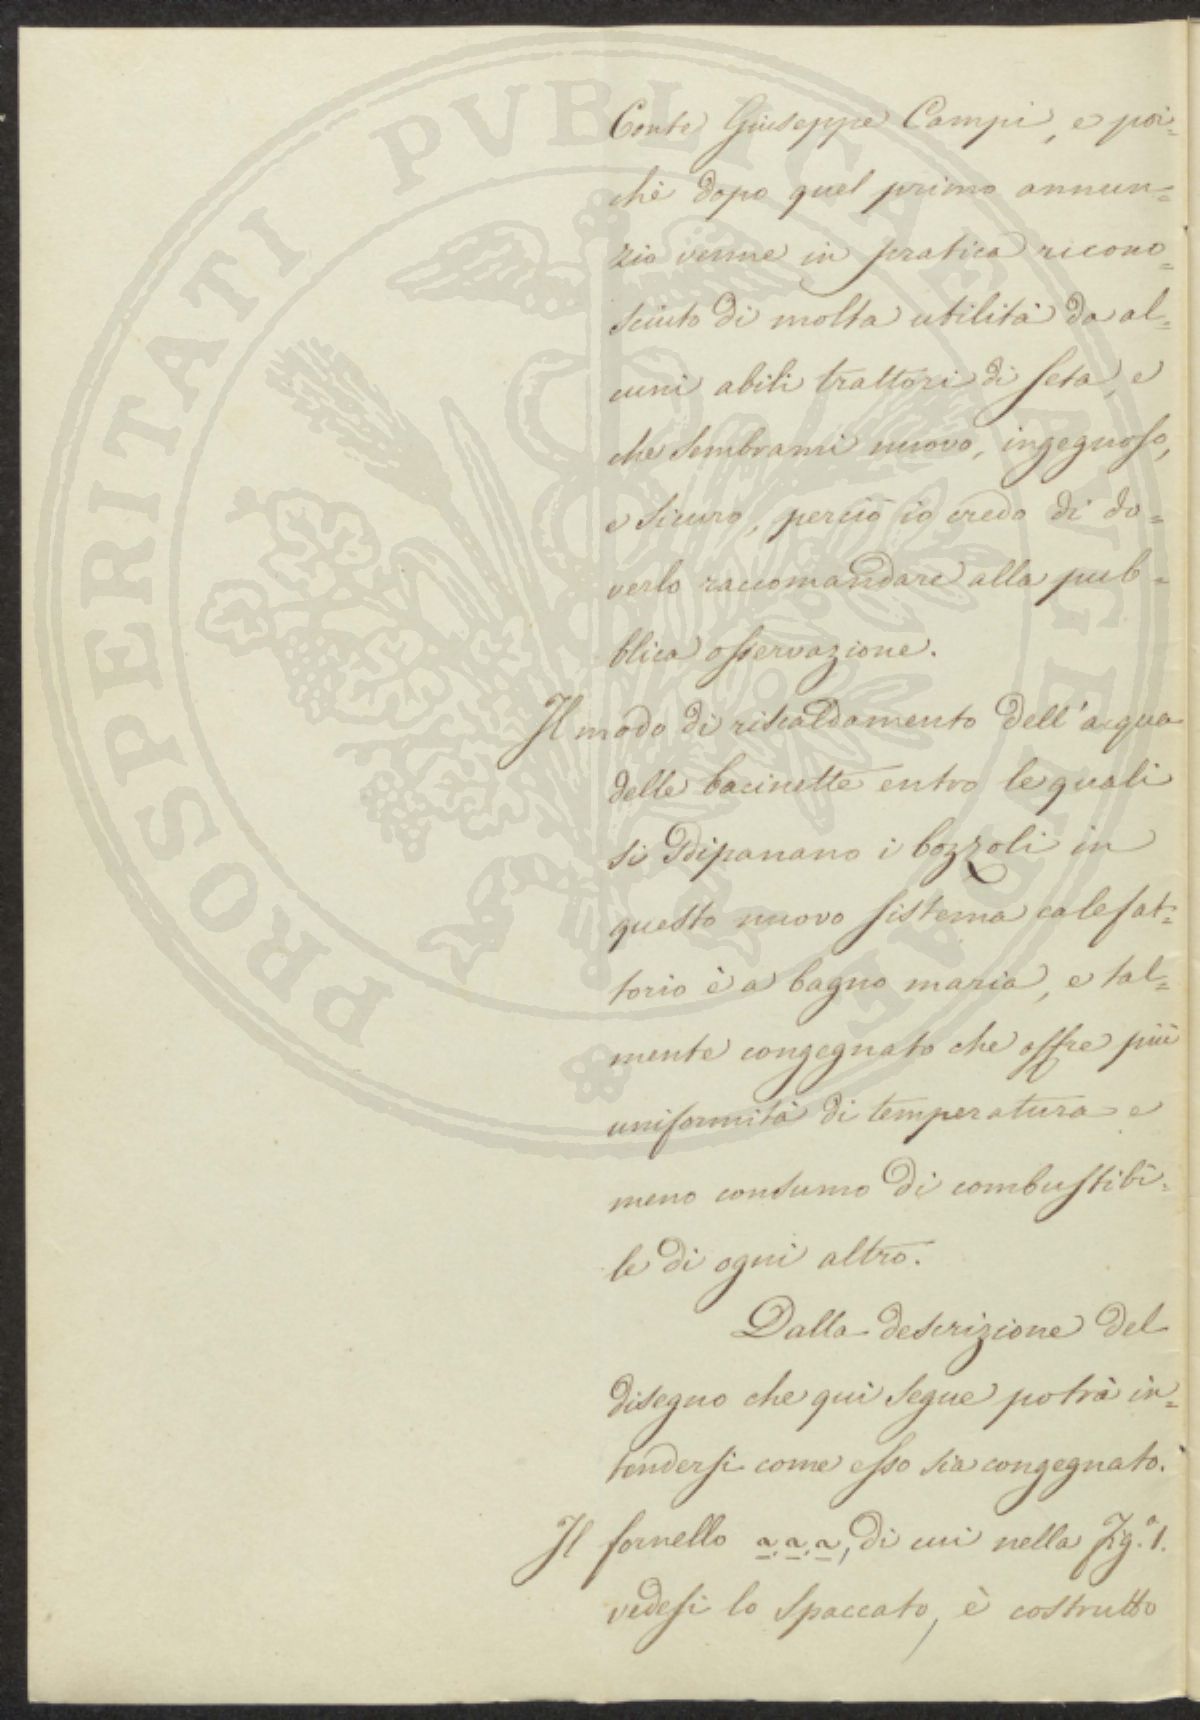 Conte Giuseppe Campi, e poi=
chè dopo quel primo annun=
zio venne in pratica ricono=
sciuto di molta utilità da al=
cuni abili trattori di seta, e
che sembrami nuovo, ingegnoso,
e sicuro, perciò io credo di do=
verlo raccomandare alla pub=
blica osservazione.
Il modo di riscaldamento dell'acqua
delle bacinette entro le quali
si dipanano i bozzoli in
questo nuovo sistema calefat=
torio è a bagno maria, e tal=
mente congegnato che offre più
uniformità di temperatura e
meno consumo di combustibi=
le di ogni altro.
Dalla descrizione del
disegno che quì segue potrà in=
tendersi come esso sia congegnato.
Il fornello a, a, a, di cui nella Fig.ª 1.
vedesi lo spaccato, è costrutto
PROSPERITATI PVBLICAE AVGENDAE